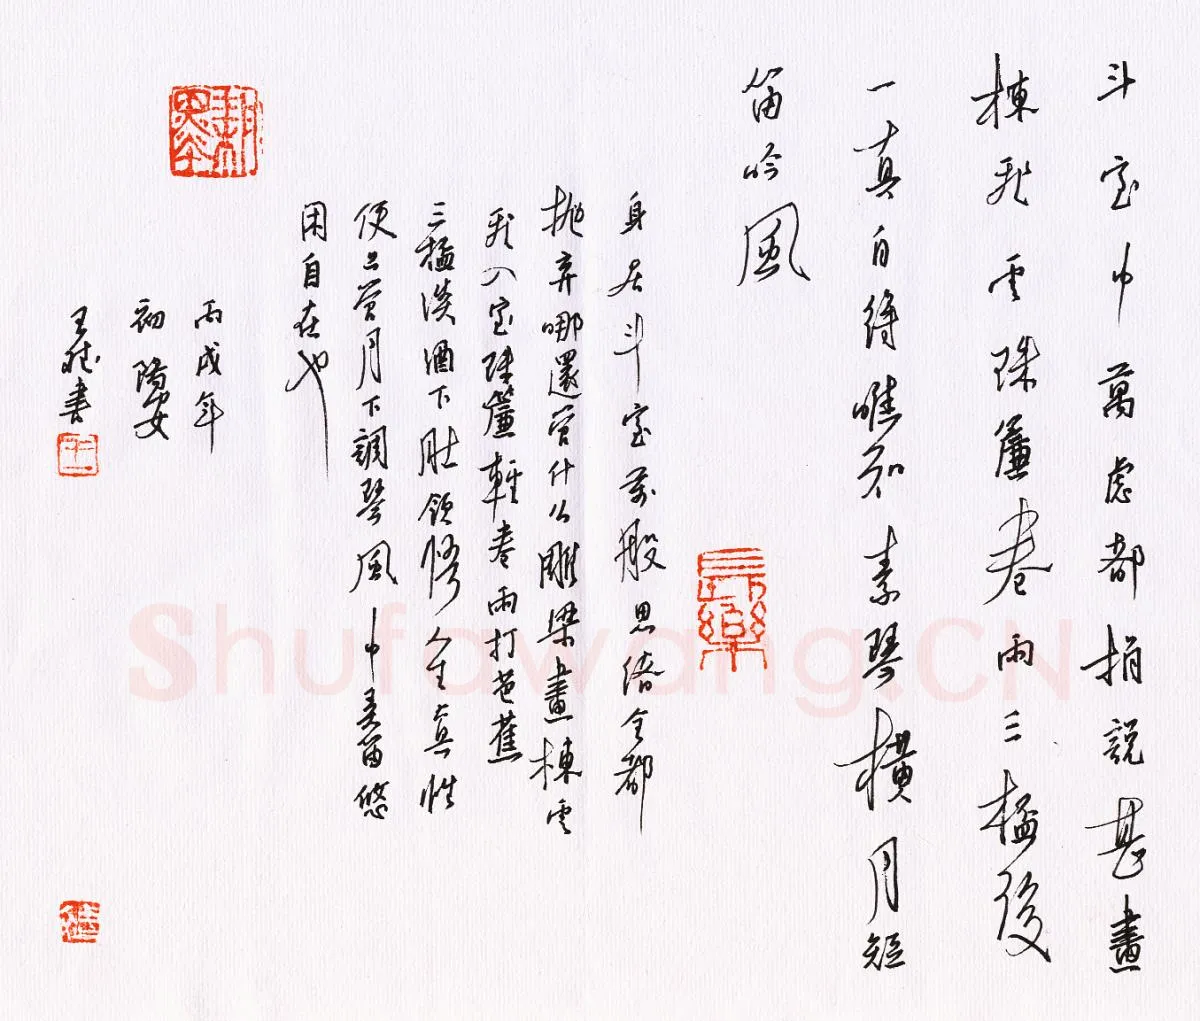 斗室中萬慮都捐説甚畫
棟飛雲珠簾卷雨三杯後
一真自得唯知素琴橫月短
笛吟風
身居斗室萬般思緒全都
拋弃哪還管什么雕梁畫棟雲
飛入室珠簾輕卷雨打芭蕉
三杯淡酒下肚領悟人生真性
便只管月下調琴風中弄笛悠
閑自在也
丙戌年
初陽
王書
Shufawang.CN